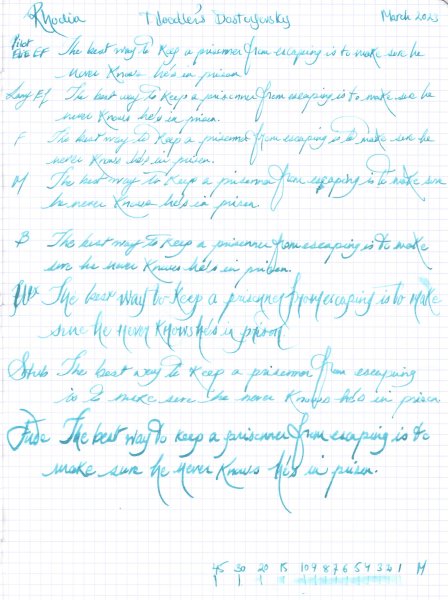 Rhodia Noodler's Dostoyevsky March 2023
Pilot EF The best way to keep a prisonner from escaping is to make sure he
never knows he's in prison
Lamy EF The best way to keep a prisonner from escaping is to make sure he
never knows he's in prison.
F The best way to keep a prisonner from escaping is to make sure he
never knows he's in prison.
M The best way to keep a prisonner from escaping is to make sure
he never knows he's in prison.
B The best way to keep a prisonner from escaping is to make
sure he never knows he's in prison.
The best way to keep a prisonner from escaping is to make
sure he never knows he's in prison
Stub The best way to keep a prisonner from escaping
is to make sure he never knows he's in prison.
Fude The best way to keep a prisonner from escaping is to
make sure he never knows he's in prison.
45 30 20 15 10 9 8 7 6 5 4 3 2 1 M